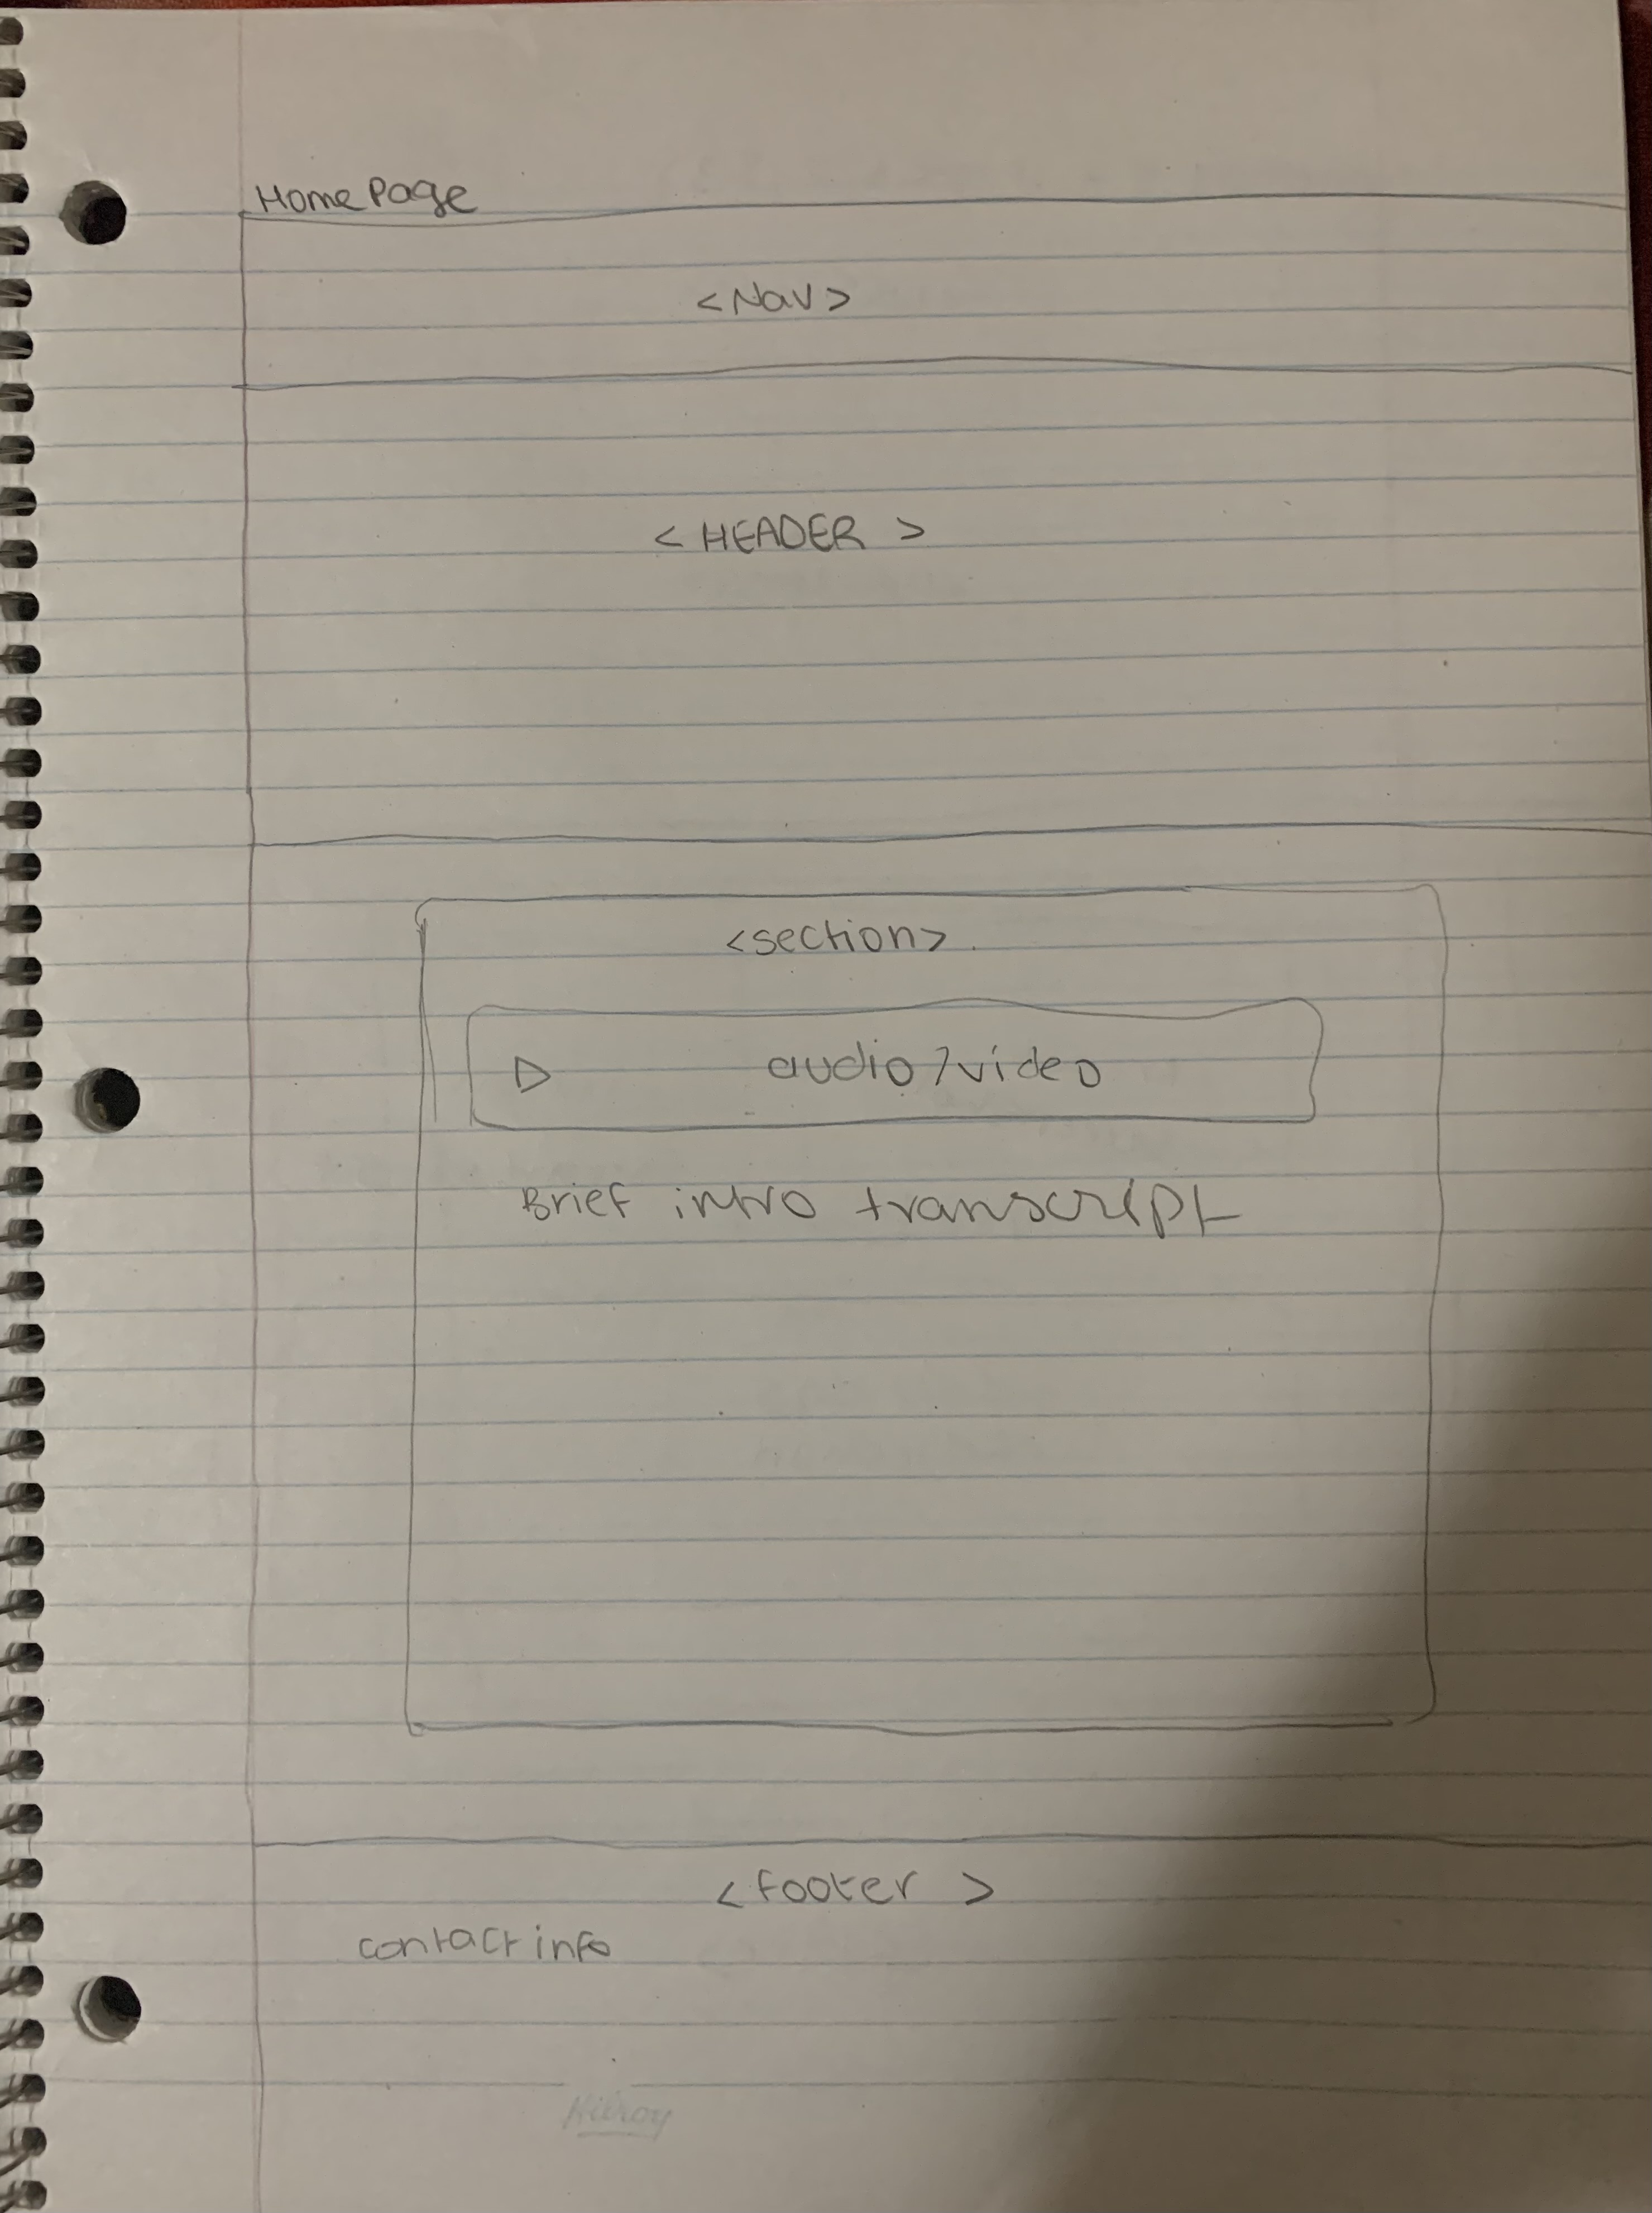 Home Page
<Nav>
< HEADER >
<section>
audio/video
Brief intro transcript
<footer >
contact info
Hilroy